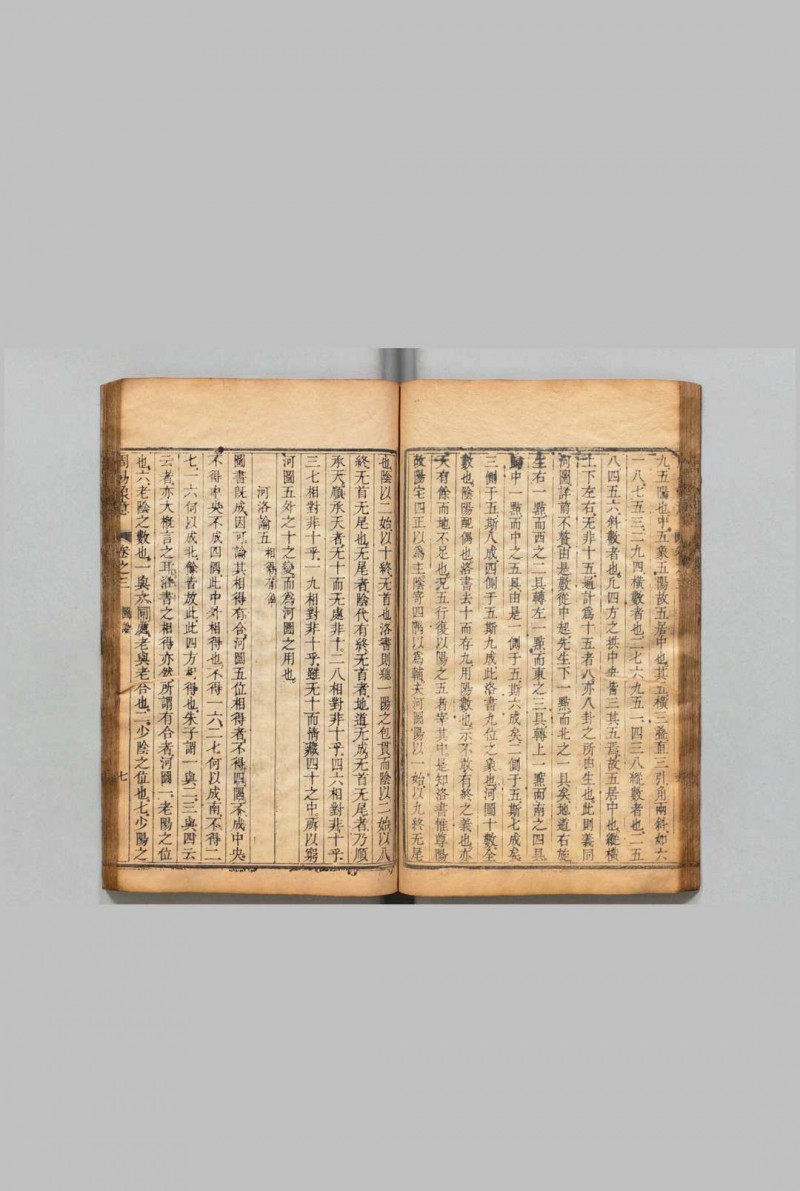 九五陽也中五象五陽故五居中也其五橫三叠直三引角兩斜如六
一八七五三二九四橫數者也二七六九五一四三八縱數者也二五
八四五六斜數者也凡四方之拱中央皆三其五焉故五居中也縱橫
上下左右无非十五通計爲十五者八亦八卦之所由生也此則義同
河圖詳前不贅由是數從中起先生下一點而北之一具矣地道右旋
生右一點而西之二具轉左一點而東之三具轉上一點而南之四具
歸中一點而中之五具由是一側于五斯六成矣二側于五斯七成矣
三側于五斯八成四側于五斯九成此洛書九位之象也河圖十數全
數也陰陽配偶也洛書去十而存九用陽數也示不敢有終之義也亦
天有餘而地不足也況五行復以陽之五者宰其中是知洛書惟尊陽
故陽宅四正以爲主陰寄四隅以爲輔夫河圖陽以一始以九終无尾
也陰以二始以十終无首也洛書則總一陽之包貫而陰以二始以八
終无首无尾也无尾者陰代有終无首者地道无成无首无尾者乃順
承天順承天者无十而无處非十二八相對非十乎四六相對非十乎
三七相對非十乎一九相對非十乎雖无十而情藏四十之中所以窮
河圖五外之十之變而爲河圖之用也
河洛論五 相得有合
圖書旣成因可論其相得有合河圖五位相得者不得四隅不成中央
不得中央不成四隅此中外相得也不得一六二七何以成南不得二
七一六何以成北餘者放此此四方相得也朱子謂一與二三與四云
云者亦大槪言之耳洛書之相得亦然所謂有合者河圖一老陽之位
也六老陰之數也一與六同處老與老合也二少陰之位也七少陽之
周易 卷之三 圖論 七